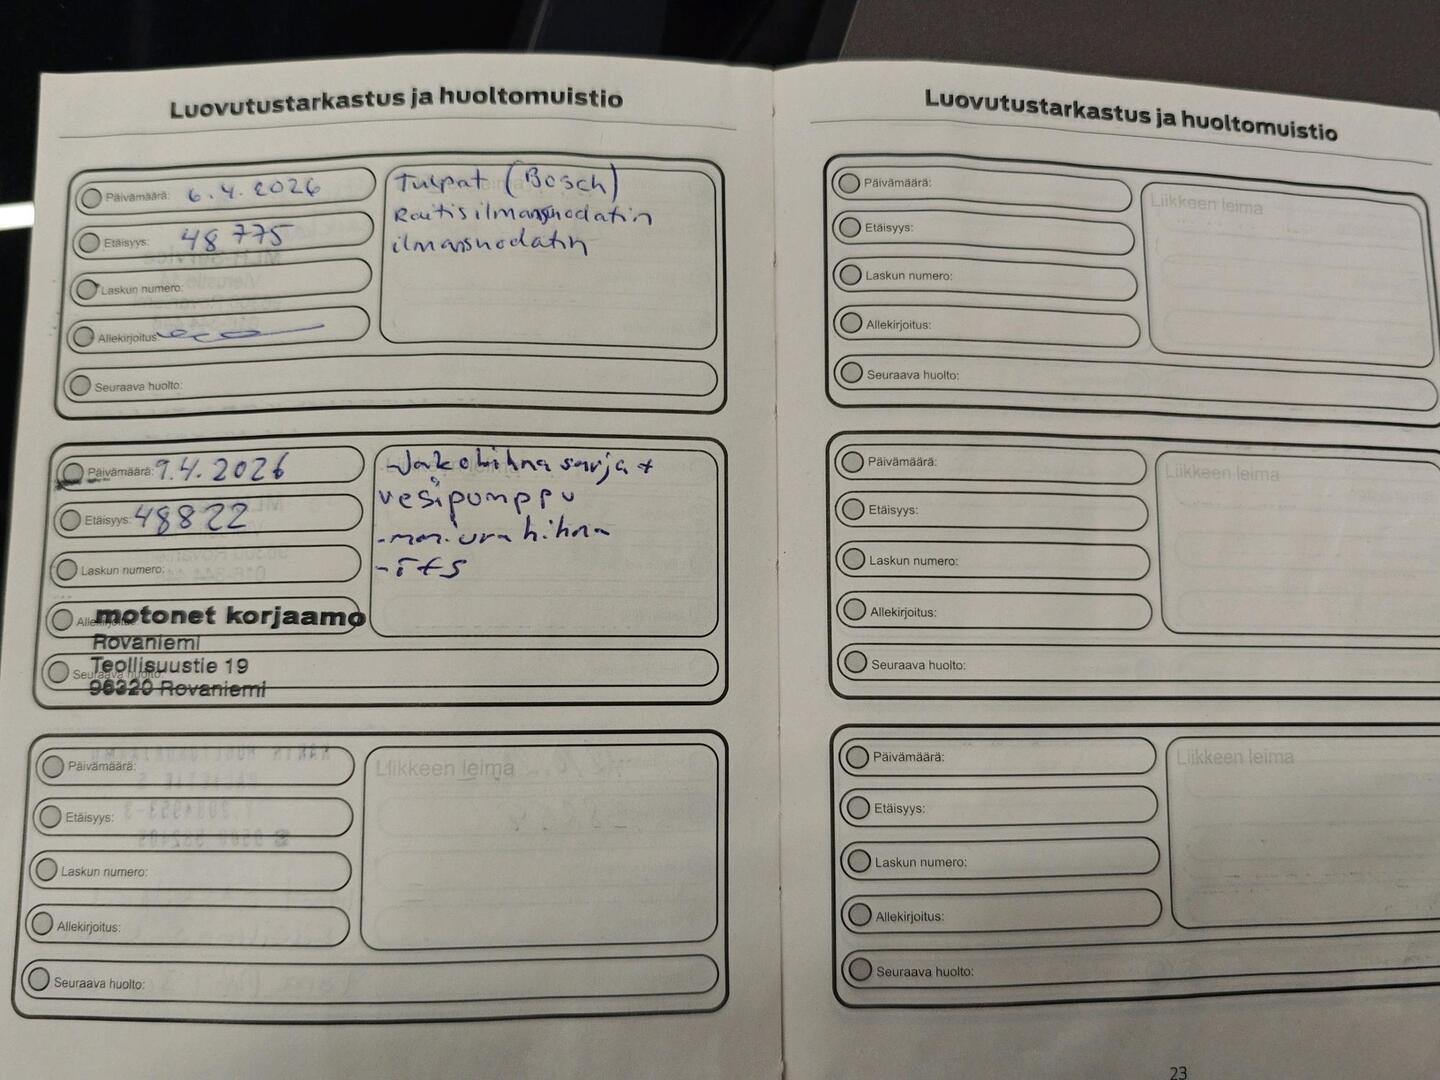 Luovutustarkastus ja huoltomuistio
Päivämäärä: 6.4.2026
Etäisyys: 48 775
Laskun numero:
Allekirjoitus:
Seuraava huolto:
Tulpat (Bosch)
Raitisilmansuodatin
ilmansuodatin
Päivämäärä: 9.4.2026
Etäisyys: 48822
Laskun numero:
Allekirjoitus:
motonet korjaamo
Rovaniemi
Teollisuustie 19
Seuraava huolto:
96320 Rovaniemi
-Jakohihna sarja +
vesipumppu
-moniurahihna
Päivämäärä:
Etäisyys:
Laskun numero:
Allekirjoitus:
Seuraava huolto:
Liikkeen leima
Luovutustarkastus ja huoltomuistio
Päivämäärä:
Etäisyys:
Laskun numero:
Allekirjoitus:
Seuraava huolto:
Liikkeen leima
Päivämäärä:
Etäisyys:
Laskun numero:
Allekirjoitus:
Seuraava huolto:
Liikkeen leima
Päivämäärä:
Etäisyys:
Laskun numero:
Allekirjoitus:
Seuraava huolto:
Liikkeen leima
23